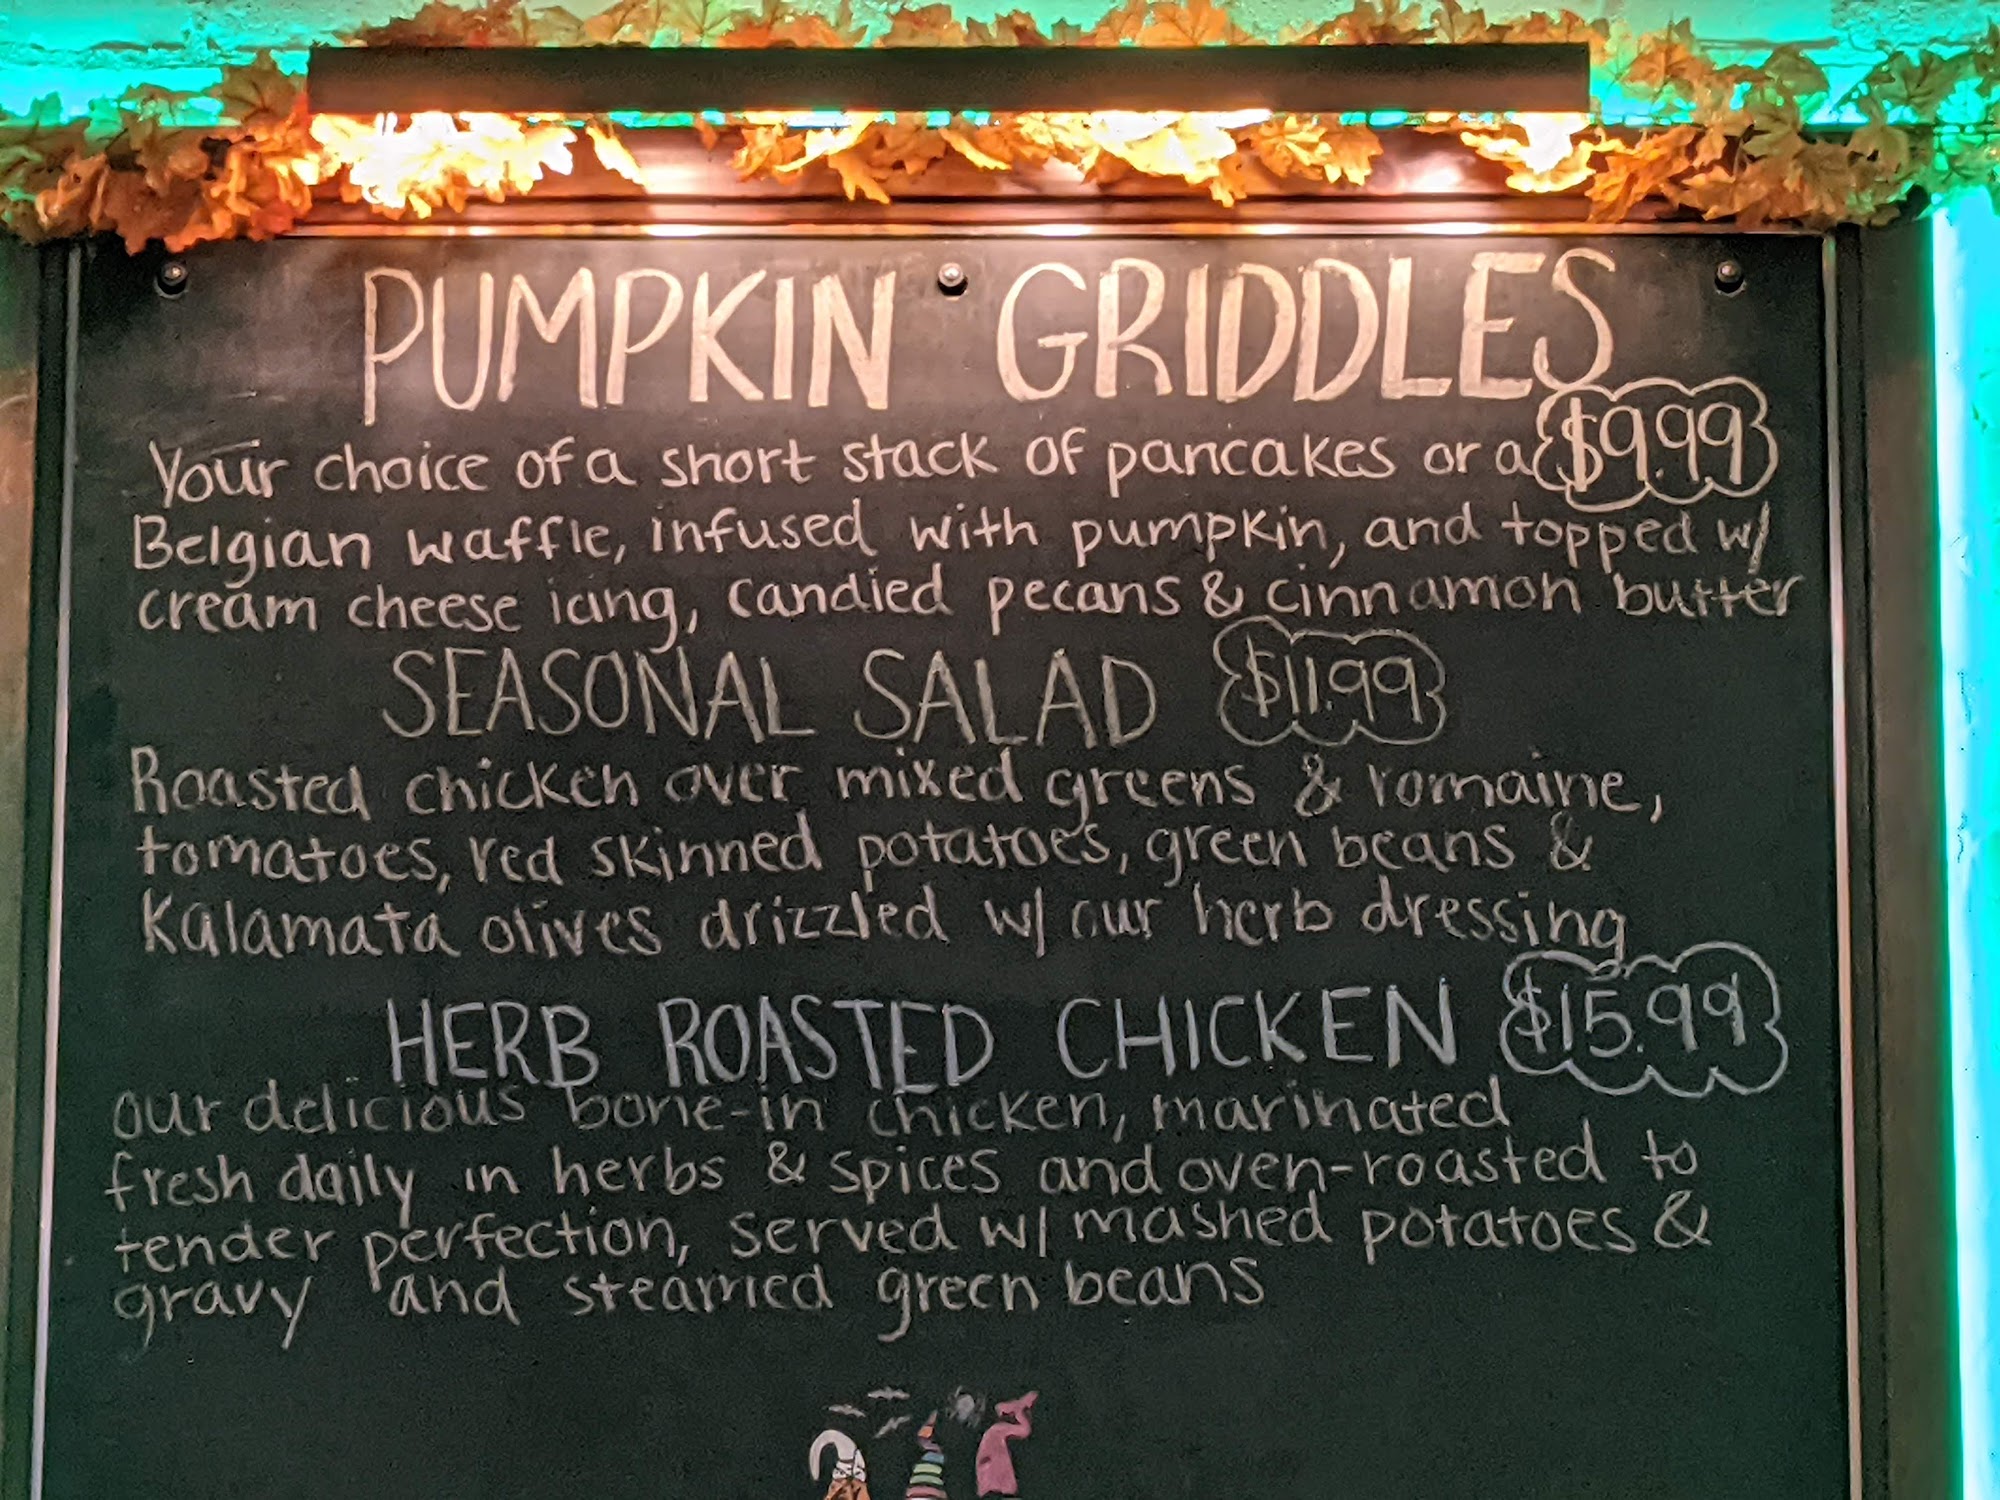 PUMPKIN GRIDDLES
$9.99
Your choice of a short stack of pancakes or a
Belgian waffle, infused with pumpkin, and topped w/
cream cheese icing, candied pecans & cinnamon butter
SEASONAL SALAD $11.99
Roasted chicken over mixed greens & romaine,
tomatoes, red skinned potatoes, green beans &
Kalamata olives drizzled w/ our herb dressing
HERB ROASTED CHICKEN $15.99
our delicious bone-in chicken, marinated
fresh daily in herbs & spices and oven-roasted to
tender perfection, served w/ mashed potatoes &
gravy and steamed green beans